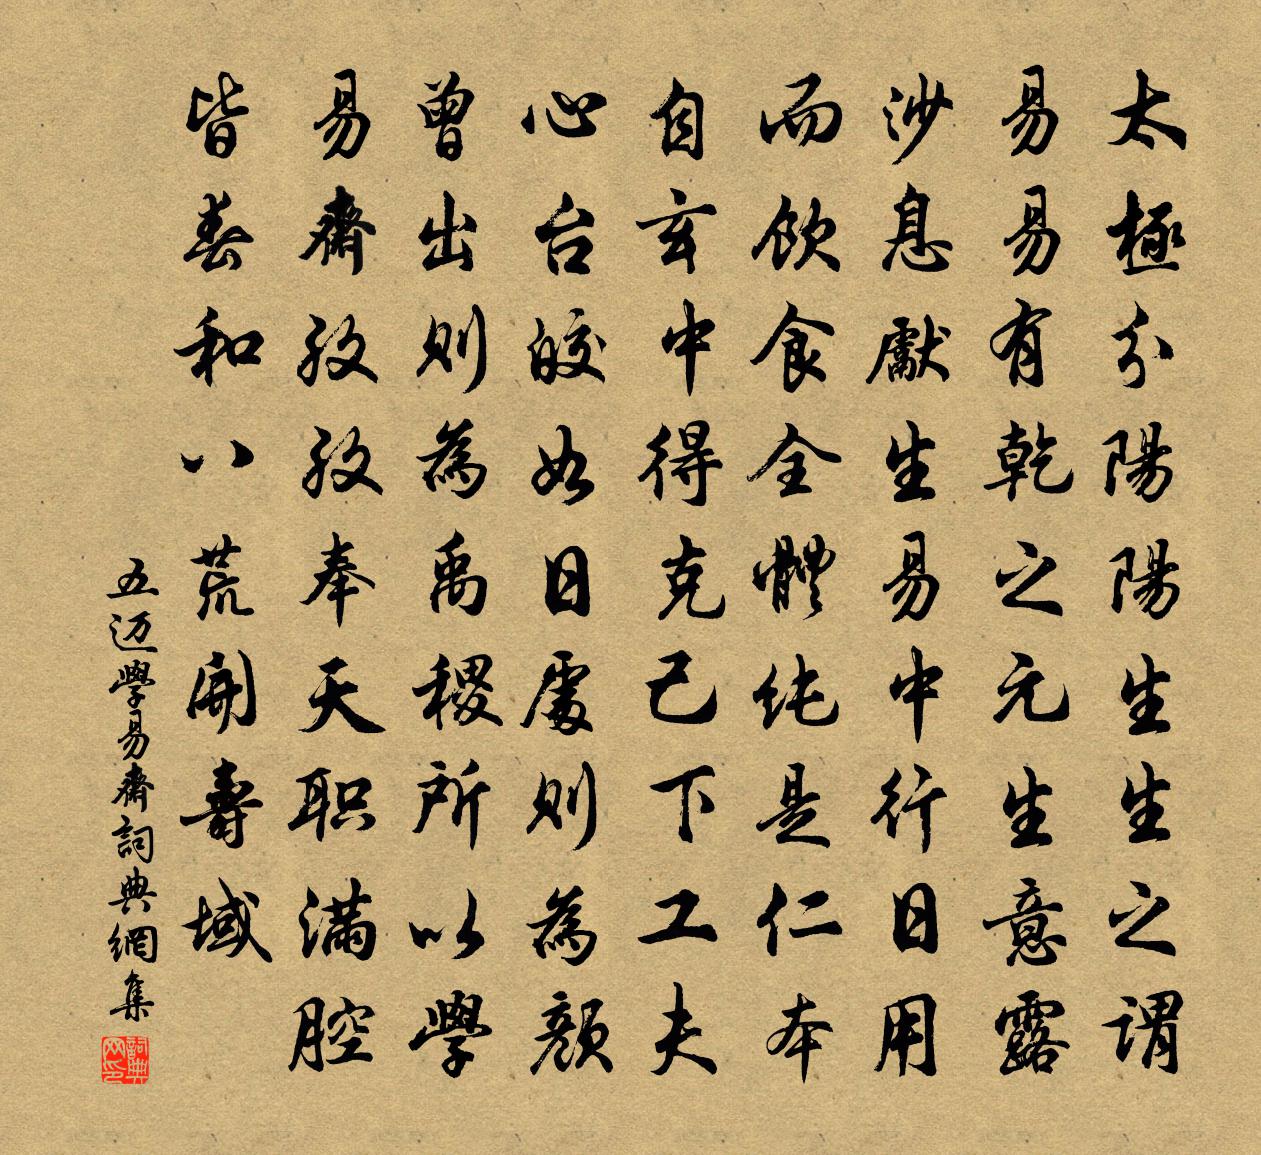 太極分陽陽生生之謂
易易有乾之元生意露
沙息獻生易中行日用
而飲食全體純是仁本
自玄中得克己下工夫
心台皎如日處則為顏
曾出則為禹稷所以學
易齋孜孜奉天职滿腔
皆春和八荒開壽域
五迈學易齋詞典網集
詞典网印